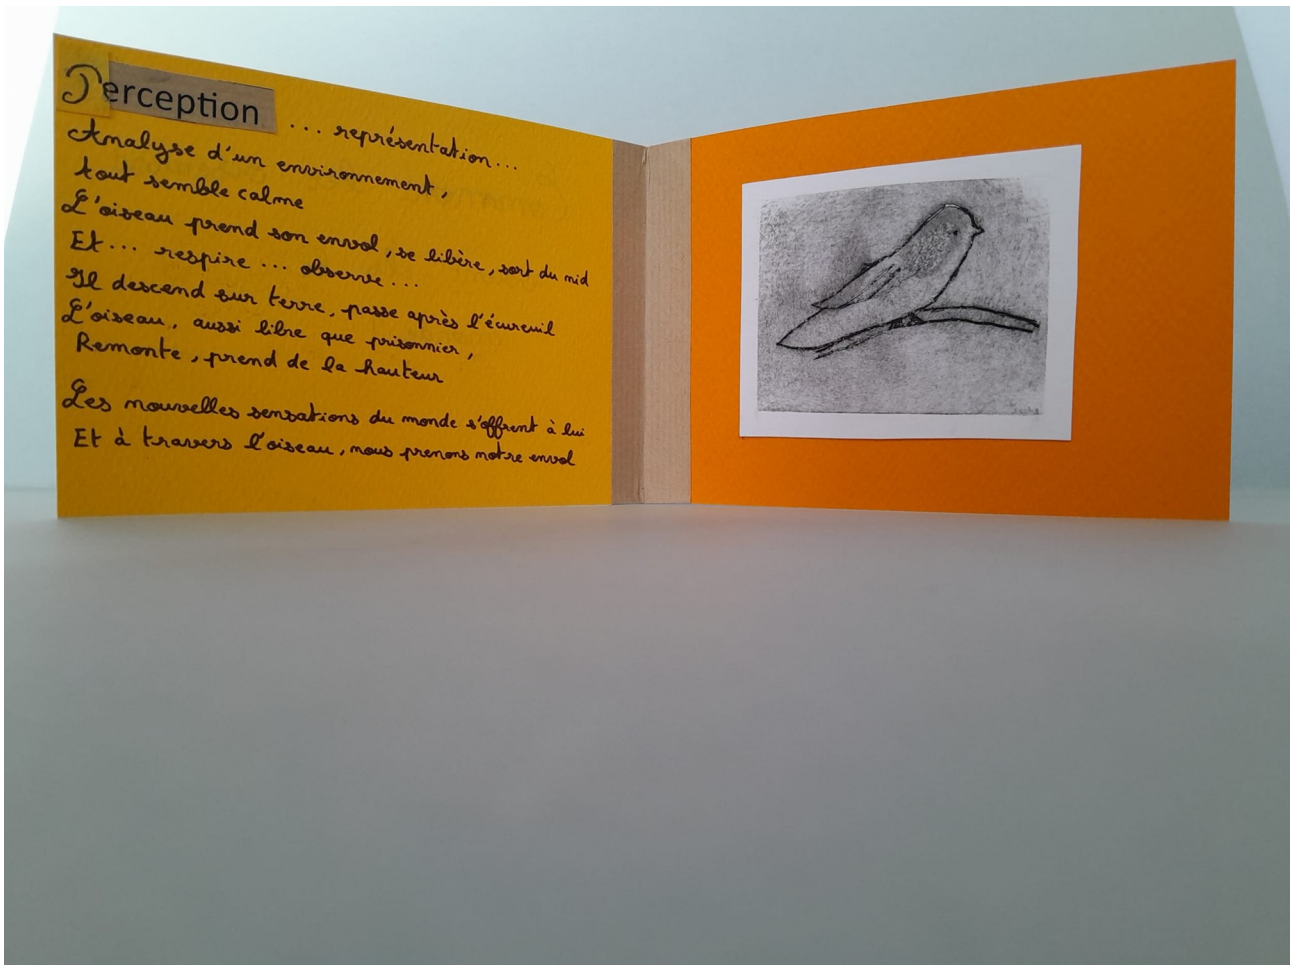 Perception ... représentation...
Analyse d'un environnement,
tout semble calme
L'oiseau prend son envol, se libère, sort du nid
Et... respire... observe...
Il descend sur terre, passe après l'écureuil
L'oiseau, aussi libre que prisonnier,
Remonte, prend de la hauteur
Les nouvelles sensations du monde s'offrent à lui
Et à travers l'oiseau, nous prenons notre envol